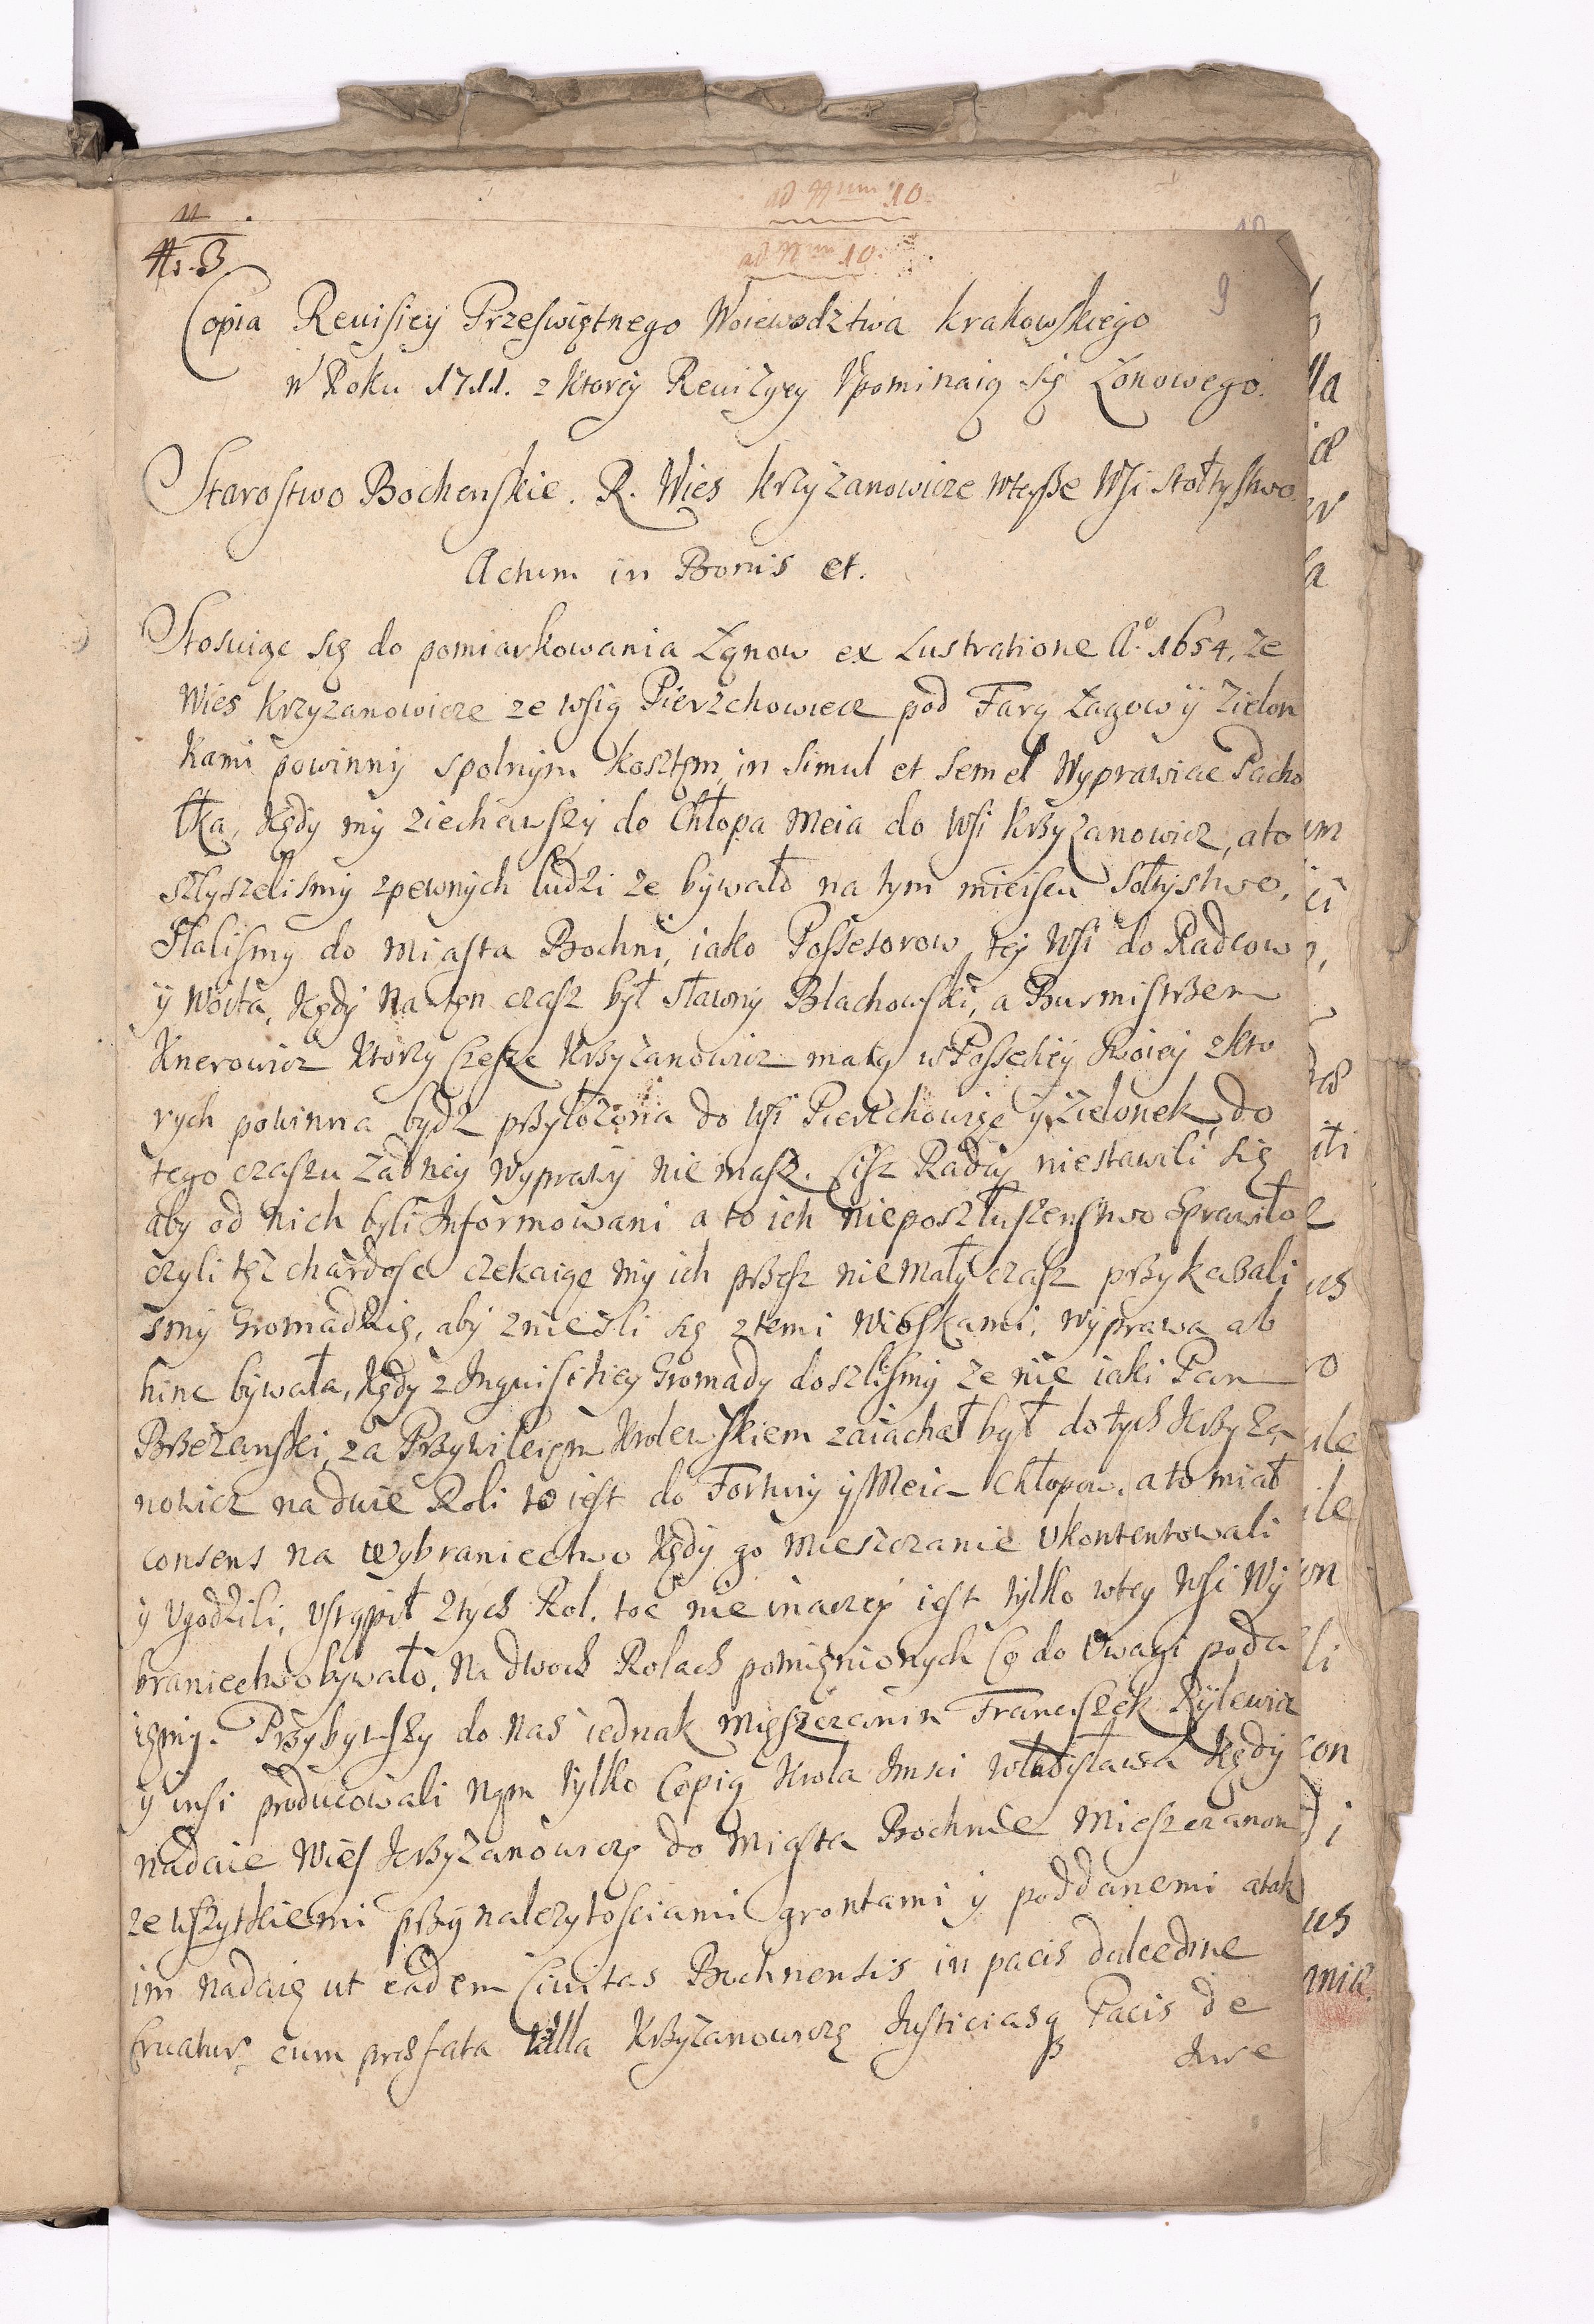 ad Nrum 10.
ad Nrum 10.
11
Nr. 3.
9
Copia Reuisiey Przeswiętnego Woiewodztwa Krakowskiego
w Roku 1711. z ktorey Reuizyey Vpominaią się Łonowego.
Starostwo Bochenskie. R. Wies Krzyzanowicze wteysze Wsi Stołtystwo
Actum in Bonis et.
Stosuiąc się do pomiarkowania Łąnow ex Lustratione Aº. 1654. ze
Wies Krzyzanowicze ze wsią Pierzchowiecz pod Farą Łagow ÿ Zielon
kami powinny spolnym kosztęm in simul et semel wyprawiac Pacho
łka, kędy my ziechawszy do Chłopa Meia do Wsi Krzyzanowicz, a to
szłyszelismy zpewnych ludzi ze bywało na tym mieiscu Sołtystwo,
Słalismy do Miasta Bochni, iako Possesorow tey Wsi do Radcow
ÿ Woita, kędy Na ten czasz był sławny Blachowski, a Burmistrzem
Knerowicz ktorzy Częsc Krzyzanowicz maią w Possessiey swoiey zkto
rych powinna bydz przyłozona do Wsi Pierzchowiec ÿ Zielonek, do
tego czaszu zadney wyprawy nie masz. Cisz Radcy niestawili się
aby od nich byli Informowani a to ich nieposzłuszenstwo sprawiło
czyli tęz chardosc czekaiąc my ich przesz niemały czasz przykazali
smy Gromadzię, aby zniesli się ztemi wioskami. wyprawa ab
hinc bywała, kędy z Inquisitiey Gromady doszlismy ze nie iaki Pan
Brzezanski, za Przywileięm Krolewskiem zaiachał był do tych Krzyza
nowicz na dwie Roli to iest do Fortuny ÿ Meia Chłopow. a to miał
consens na wybraniectwo kędy go Mieszczanie Vkontentowali
ÿ vgodzili, vstąpił ztych Rol. toc nie inaczey iest tylko wtey Wsi Wy
braniectwo bywało, na dwoch Rolach pomięnionych Co do Vwagi poda
ięmy. Przybywszy do nas iednak Mięszczanin Franciszek Rylewicz
ÿ insi producowali nąm tylko Copią Krola Jmsci Władysława kędy
nadaie Wies Krzyzanowiczę do Miasta Bochnie Mieszczanom
ze wszytkiemi przynalezytosciami grontami ÿ poddanemi a tak
im nadaię ut eadem Ciuitas Bochnensis in pacis dulcedine
fruatur, cum præfata Villa Krzyzanowiczę Justiciasq Pacis de
Jure